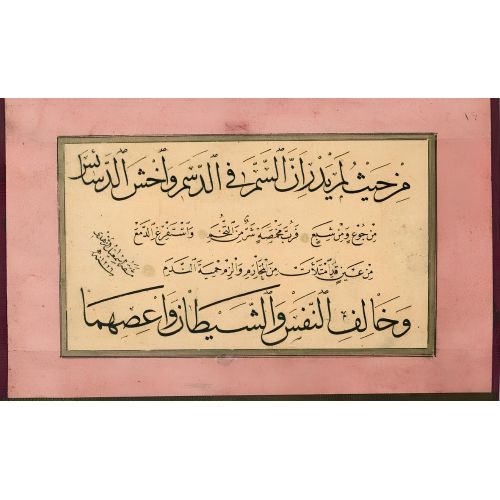 من حيث لم يدر ان السم في الدسم واخش الدسائس
من جوع ومن شبع فرب مخمصة شر من التخم واستفرغ الدمع
من عين قد امتلأت من المحارم والزم حمية الندم
وخالف النفس والشيطان واعصهما